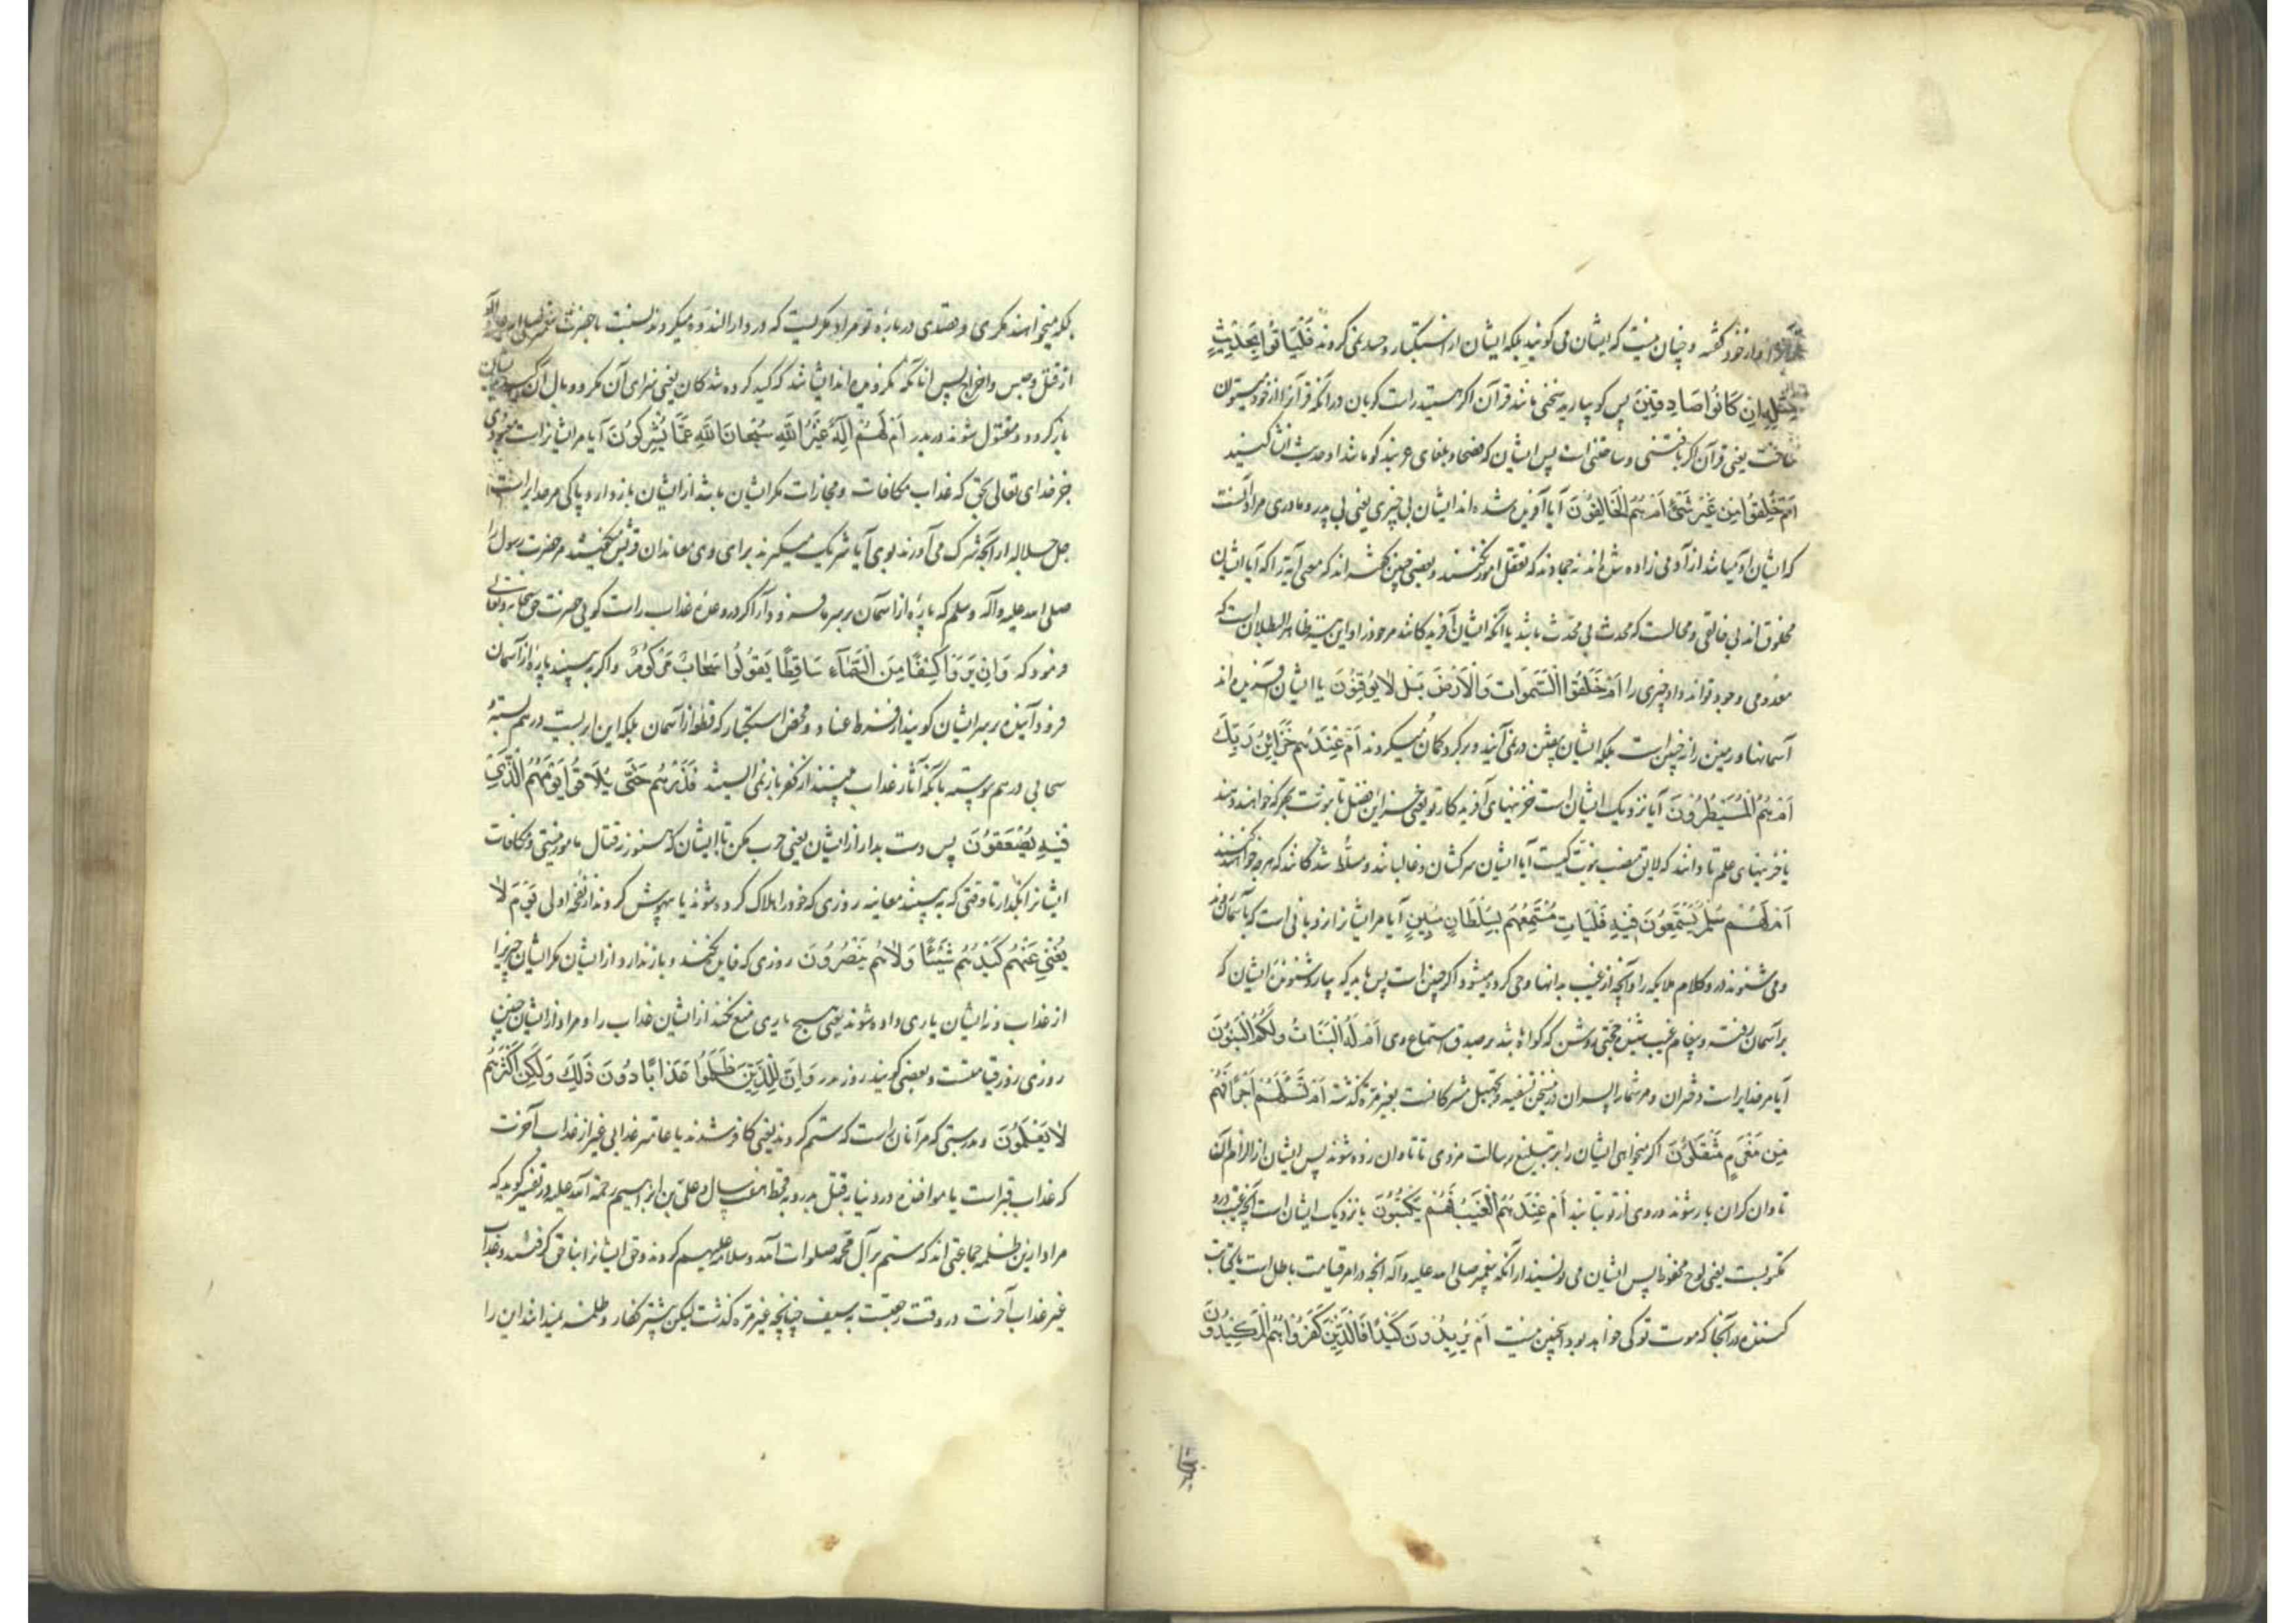 او از خود گفته و چنان نیست که ایشان می گویند بلکه ایشان از استکبار و حسد نمی گروند فَلْیَأتُوا بِحَدِیثٍ
مِثْلِهِ اِنْ کَانُوا صَادِقِینَ پس کو بیارید سخنی مانند قرآن اگر هستید راست گویان در آنکه قرآنرا از خود میتوان
ساخت یعنی قرآن اگر بافتنی و ساختنی است پس ایشان که فصحا و بلغای عربند کو مانند او حدیث انشا کنید
اَمْ خُلِقُوا مِنْ غَیْرِ شَیْءٍ اَمْ هُمُ الْخَالِقُونَ آیا آفریده شده اند ایشان بی چیزی یعنی بی پدر و مادری مراد آنست
که ایشان از آدمی زاده شده اند نه جمادند که تعقل امور نکنند و بعضی چنین گفته اند که معنی آیه آنکه آیا ایشان
مخلوق اند بی خالقی و محالست که محدث بی محدِث باشد یا آنکه ایشان آفرینندگانند مر خود را و این نیز ظاهر البطلان است که
معدومی وجود تواند داد چیزی را اَمْ خَلَقُوا السَّمٰوَاتِ وَالْاَرْضَ بَلْ لَا یُوقِنُونَ یا ایشان آفریده اند
آسمانها و زمین را نه چنین است بلکه ایشان بیقین در نمی آیند و بر گرد گمان میگردند اَمْ عِنْدَهُمْ خَزَائِنُ رَبِّکَ
اَمْ هُمُ الْمُصَیْطِرُونَ آیا نزدیک ایشان است خزینهای آفریدگار تو یعنی خزاین فضل تا نبوت بهر که خواهند دهند
یا خزینهای علم تا دانند که لایق منصب نبوت کیست آیا ایشان سرکشان و غالبانند و مسلّط شدگانند که هر چه خواهند کنند
اَمْ لَهُمْ سُلَّمٌ یَسْتَمِعُونَ فِیهِ فَلْیَأتِ مُسْتَمِعُهُمْ بِسُلْطَانٍ مُبِینٍ آیا مر ایشانرا نردبانی است که بآسمان روند
و می شنوند در و کلام ملایکه را و آنچه از غیب بدانها وحی کرده میشود اگر چنین است پس باید که بیارد شنونده ایشان که
بر آسمان رفته و پیغام غیب شنیده حجتی روشن که گواه باشد بر صدق استماع وی اَمْ لَهُ الْبَنَاتُ وَلَکُمُ الْبَنُونَ
آیا مر خدایراست دختران و مر شما را پسران در این سخن تسفیه و تجهیل مشرکانست بغیر مره گذشته اَمْ تَسْئَلُهُمْ اَجْرًا فَهُمْ
مِنْ مَغْرَمٍ مُثْقَلُونَ آیا میخواهی ایشان را بر تبلیغ رسالت مزدی تا تاوان زده شوند پس ایشان از الزام آن
تاوان گران بار شوند و روی از تو بتابند اَمْ عِنْدَهُمُ الْغَیْبُ فَهُمْ یَکْتُبُونَ یا نزدیک ایشان است آنچه غیب درو
مکتوبست یعنی لوح محفوظ پس ایشان می نویسند از آنکه پیغمبر صلی الله علیه و آله آنچه در امر قیامت باطل است یا کتابت
کننده در آنجا که موت تو کی خواهد بود و اینچنین نیست اَمْ یُرِیدُونَ کَیْدًا فَالَّذِینَ کَفَرُوا هُمُ الْمَکِیدُونَ
بلکه میخواهند مکری و قصدی در باره تو مراد مکریست که در دار الندوه میکردند نسبت با حضرت پیغمبر صلی الله علیه و آله
از قتل و حبس و اخراج پس آنانکه نگرویده اند ایشانند که کید کرده شدگان یعنی سزای آن مکر و وبال آن بدیشان
باز گردد و مقتول شوند در بدر اَمْ لَهُمْ اِلٰهٌ غَیْرُ اللهِ سُبْحَانَ اللهِ عَمَّا یُشْرِکُونَ آیا مر ایشانراست معبودی
جز خدای تعالی بحق که عذاب مکافات و مجازات مکر ایشان باشد از ایشان باز دارد و پاکی مر خدایراست
جل جلاله از آنچه شرک می آورند بوی آیا شریک میگیرند برای وی معاندان قریش گفتند مر حضرت رسول را
صلی الله علیه و آله و سلم که پاره از آسمان بر سر ما فرود آر اگر در وعده عذاب راست گویی حضرت حق سبحانه و تعالی
فرمود که وَاِنْ یَرَوْا کِسْفًا مِنَ السَّمَآءِ سَاقِطًا یَقُولُوا سَحَابٌ مَرْکُومٌ و اگر به بینند پاره از آسمان
فرود آینده بر سر ایشان گویند از فرط عناد و محض استکبار که نه قطعه از آسمان بلکه این ابریست در هم نشسته
سحابی در هم پیوسته با آنکه آثار عذاب می بینند از کفر باز نمی ایستند فَذَرْهُمْ حَتَّی یُلَاقُوا یَوْمَهُمُ الَّذِی
فِیهِ یُصْعَقُونَ پس دست بدار از ایشان یعنی حرب مکن با ایشان که هنوز در قتال مامور نیستی و مکافات
ایشانرا بگذار تا وقتی که به بینند معاینه روزی که خود را هلاک کرده شوند یا بیهوش گردند از نفخه اولی یَوْمَ لَا
یُغْنِی عَنْهُمْ کَیْدُهُمْ شَیْئًا وَلَا هُمْ یُنْصَرُونَ روزی که فایده نکند و باز ندارد از ایشان مکر ایشان چیزیرا
از عذاب و نه ایشان یاری داده شوند یعنی هیچ یاری منع نکند از ایشان عذاب را و مراد از ایشان چنین
روزی روز قیامتست و بعضی گویند روز بدر وَاِنَّ لِلَّذِینَ ظَلَمُوا عَذَابًا دُونَ ذٰلِکَ وَلٰکِنَّ اَکْثَرَهُمْ
لَا یَعْلَمُونَ و بدرستی که مر آنان راست که ستم کردند یعنی کافر شدند یا عامتر عذابی غیر از عذاب آخرت
که عذاب قبر است یا مواخذه در دنیا بقتل بدر و به قحط هفت سال و علی بن ابراهیم رحمة الله علیه در تفسیر گوید که
مراد ازین ظلمه جماعتی اند که ستم بر آل محمد صلوات الله و سلامه علیهم کردند و حق ایشانرا بناحق گرفتند و عذاب
غیر عذاب آخرت در وقت رجعتست به سیف چنانچه غیر مره گذشت لیکن بیشتر کفار و ظلمه نمیدانند این را